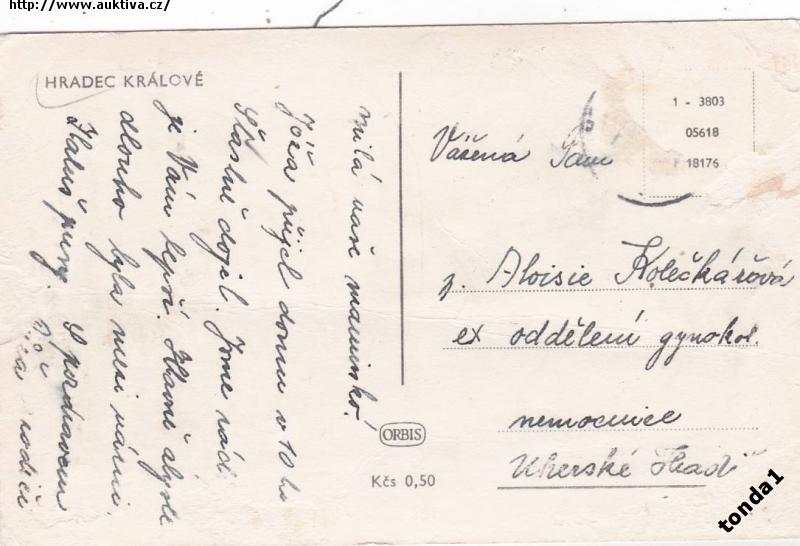 http://www.auktiva.cz/
HRADEC KRÁLOVÉ
Milá naše maminko!
Jóža přijel domu v 10 ho
šťastně dojel. Jsme rádi
je Vám lepší. Hlavně abyste
dlouho byla mezi námi.
S pozdravem
a rodiči
1 - 3803
05618
18176
Vážená Paní
p. Aloisie Kolečkářová
ex oddělení gynokol.
nemocnice
Uherské Hrad
ORBIS
Kčs 0,50
tonda1